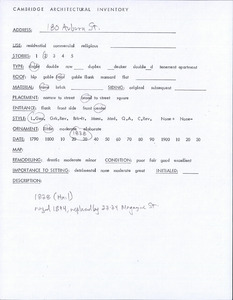 CAMBRIDGE ARCHITECTURAL INVENTORY
ADDRESS: 130 Auburn St.
USE: residential commercial religious
STORIES: 1 2 3 4 5
TYPE: single double row duplex decker double-d tenement apartment
ROOF: hip gable flank gable mansard flat
MATERIAL: wood brick SIDING: original subsequent
PLACEMENT: narrow to street broad to street square
ENTRANCE: flank front side front center
ORNAMENT: little moderate elaborate
1828
DATE: 1790 1800 10 20 30 40 50 60 70 80 90 1900 10 20 30
MAP:
REMODELING: drastic moderate minor CONDITION: poor fair good excellent
IMPORTANCE TO SETTING: detrimental some moderate great INITIALED:
DESCRIPTION:
1828
razed 1894, replaced by 22-24 Magazine St.